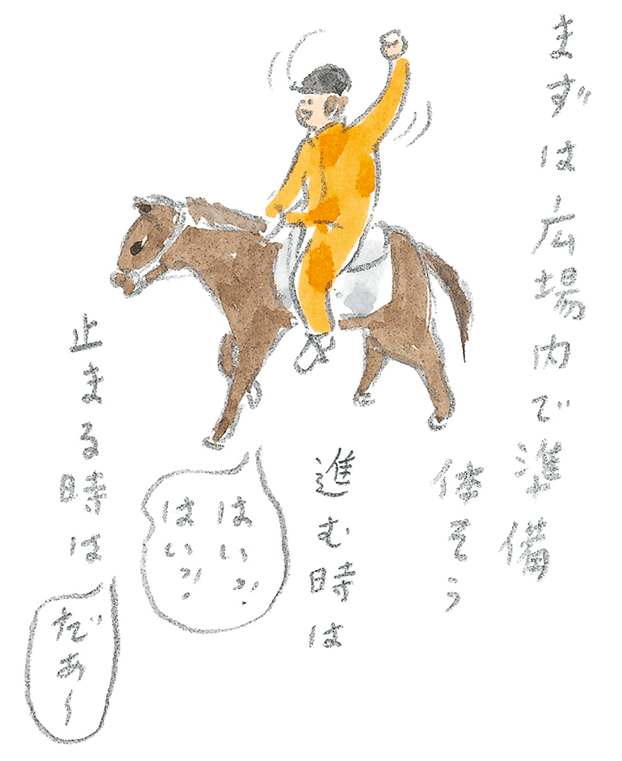 まずは広場内で準備
体そう
進む時は
はいっ!
はいっ!
止まる時は
だぁ〜